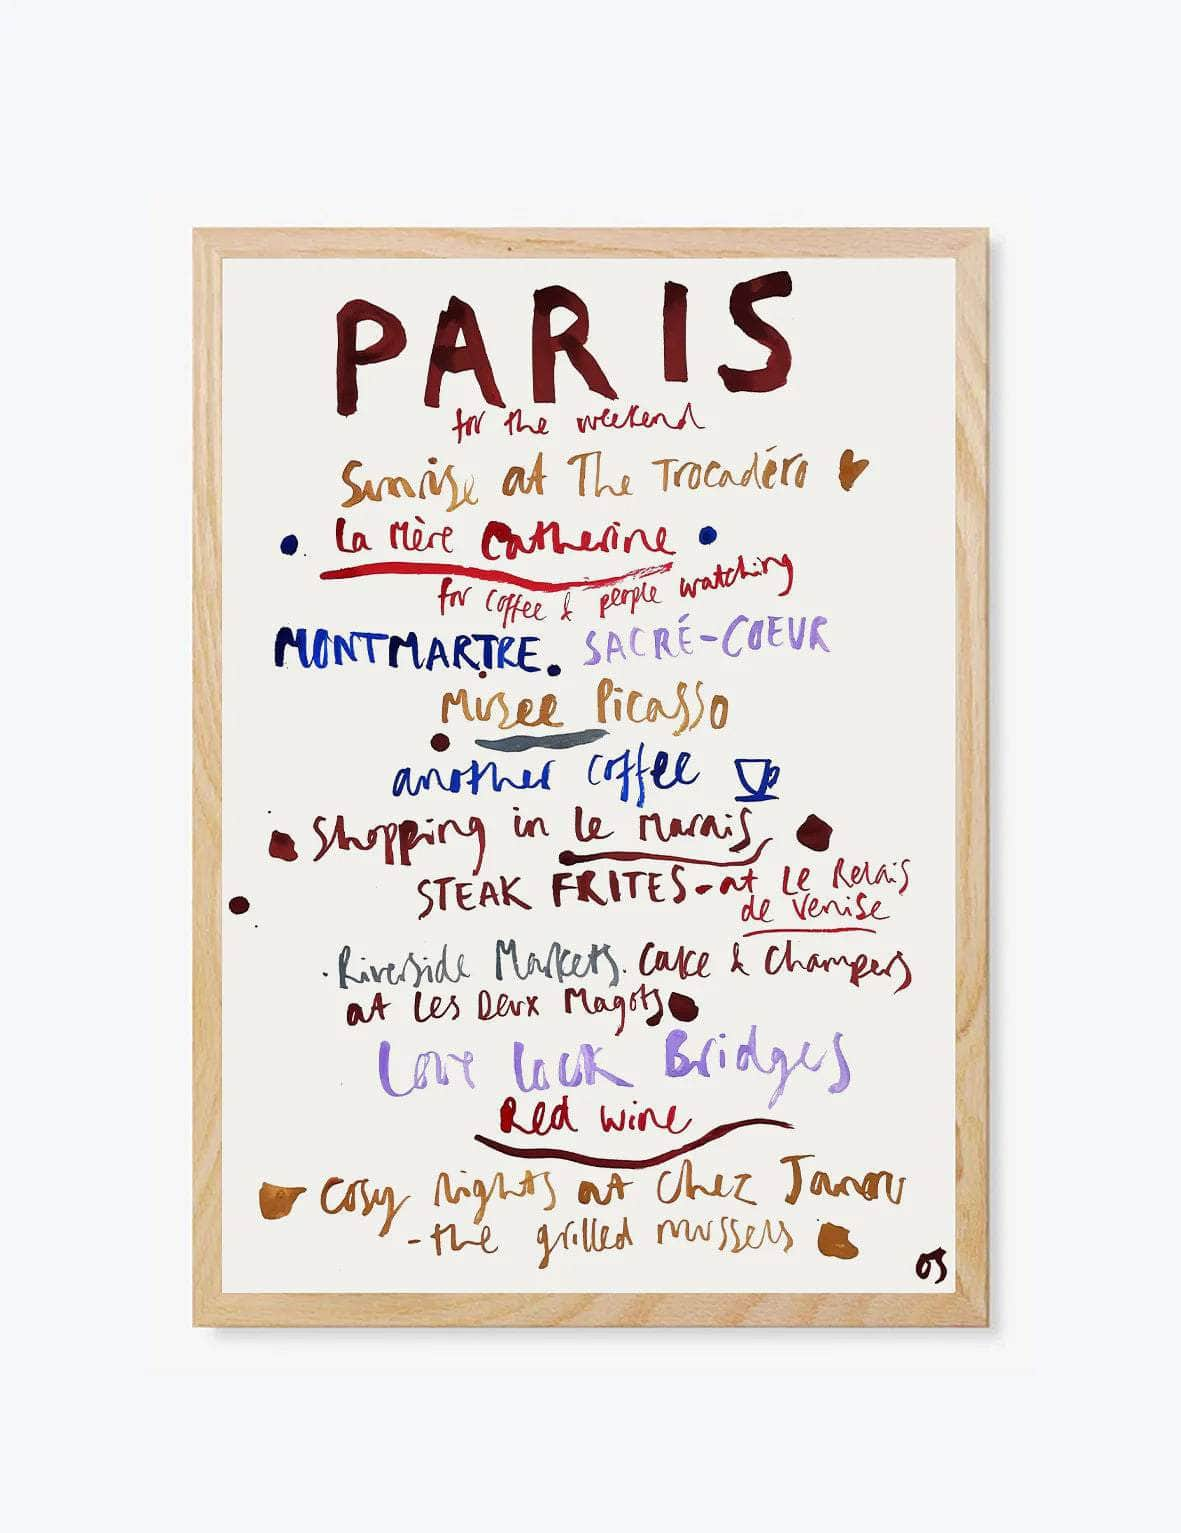 PARIS
for the weekend
Sunrise at The Trocadéro
La Mère Catherine
for coffee & people watching
MONTMARTRE. SACRÉ-COEUR
Musee Picasso
another coffee
Shopping in Le Marais
STEAK FRITES - at Le Relais
de Venise
. Riverside Markets. Cake & Champers
at Les Deux Magots
Love lock Bridges
Red wine
Cosy nights at Chez Janou
- the grilled mussels
OS